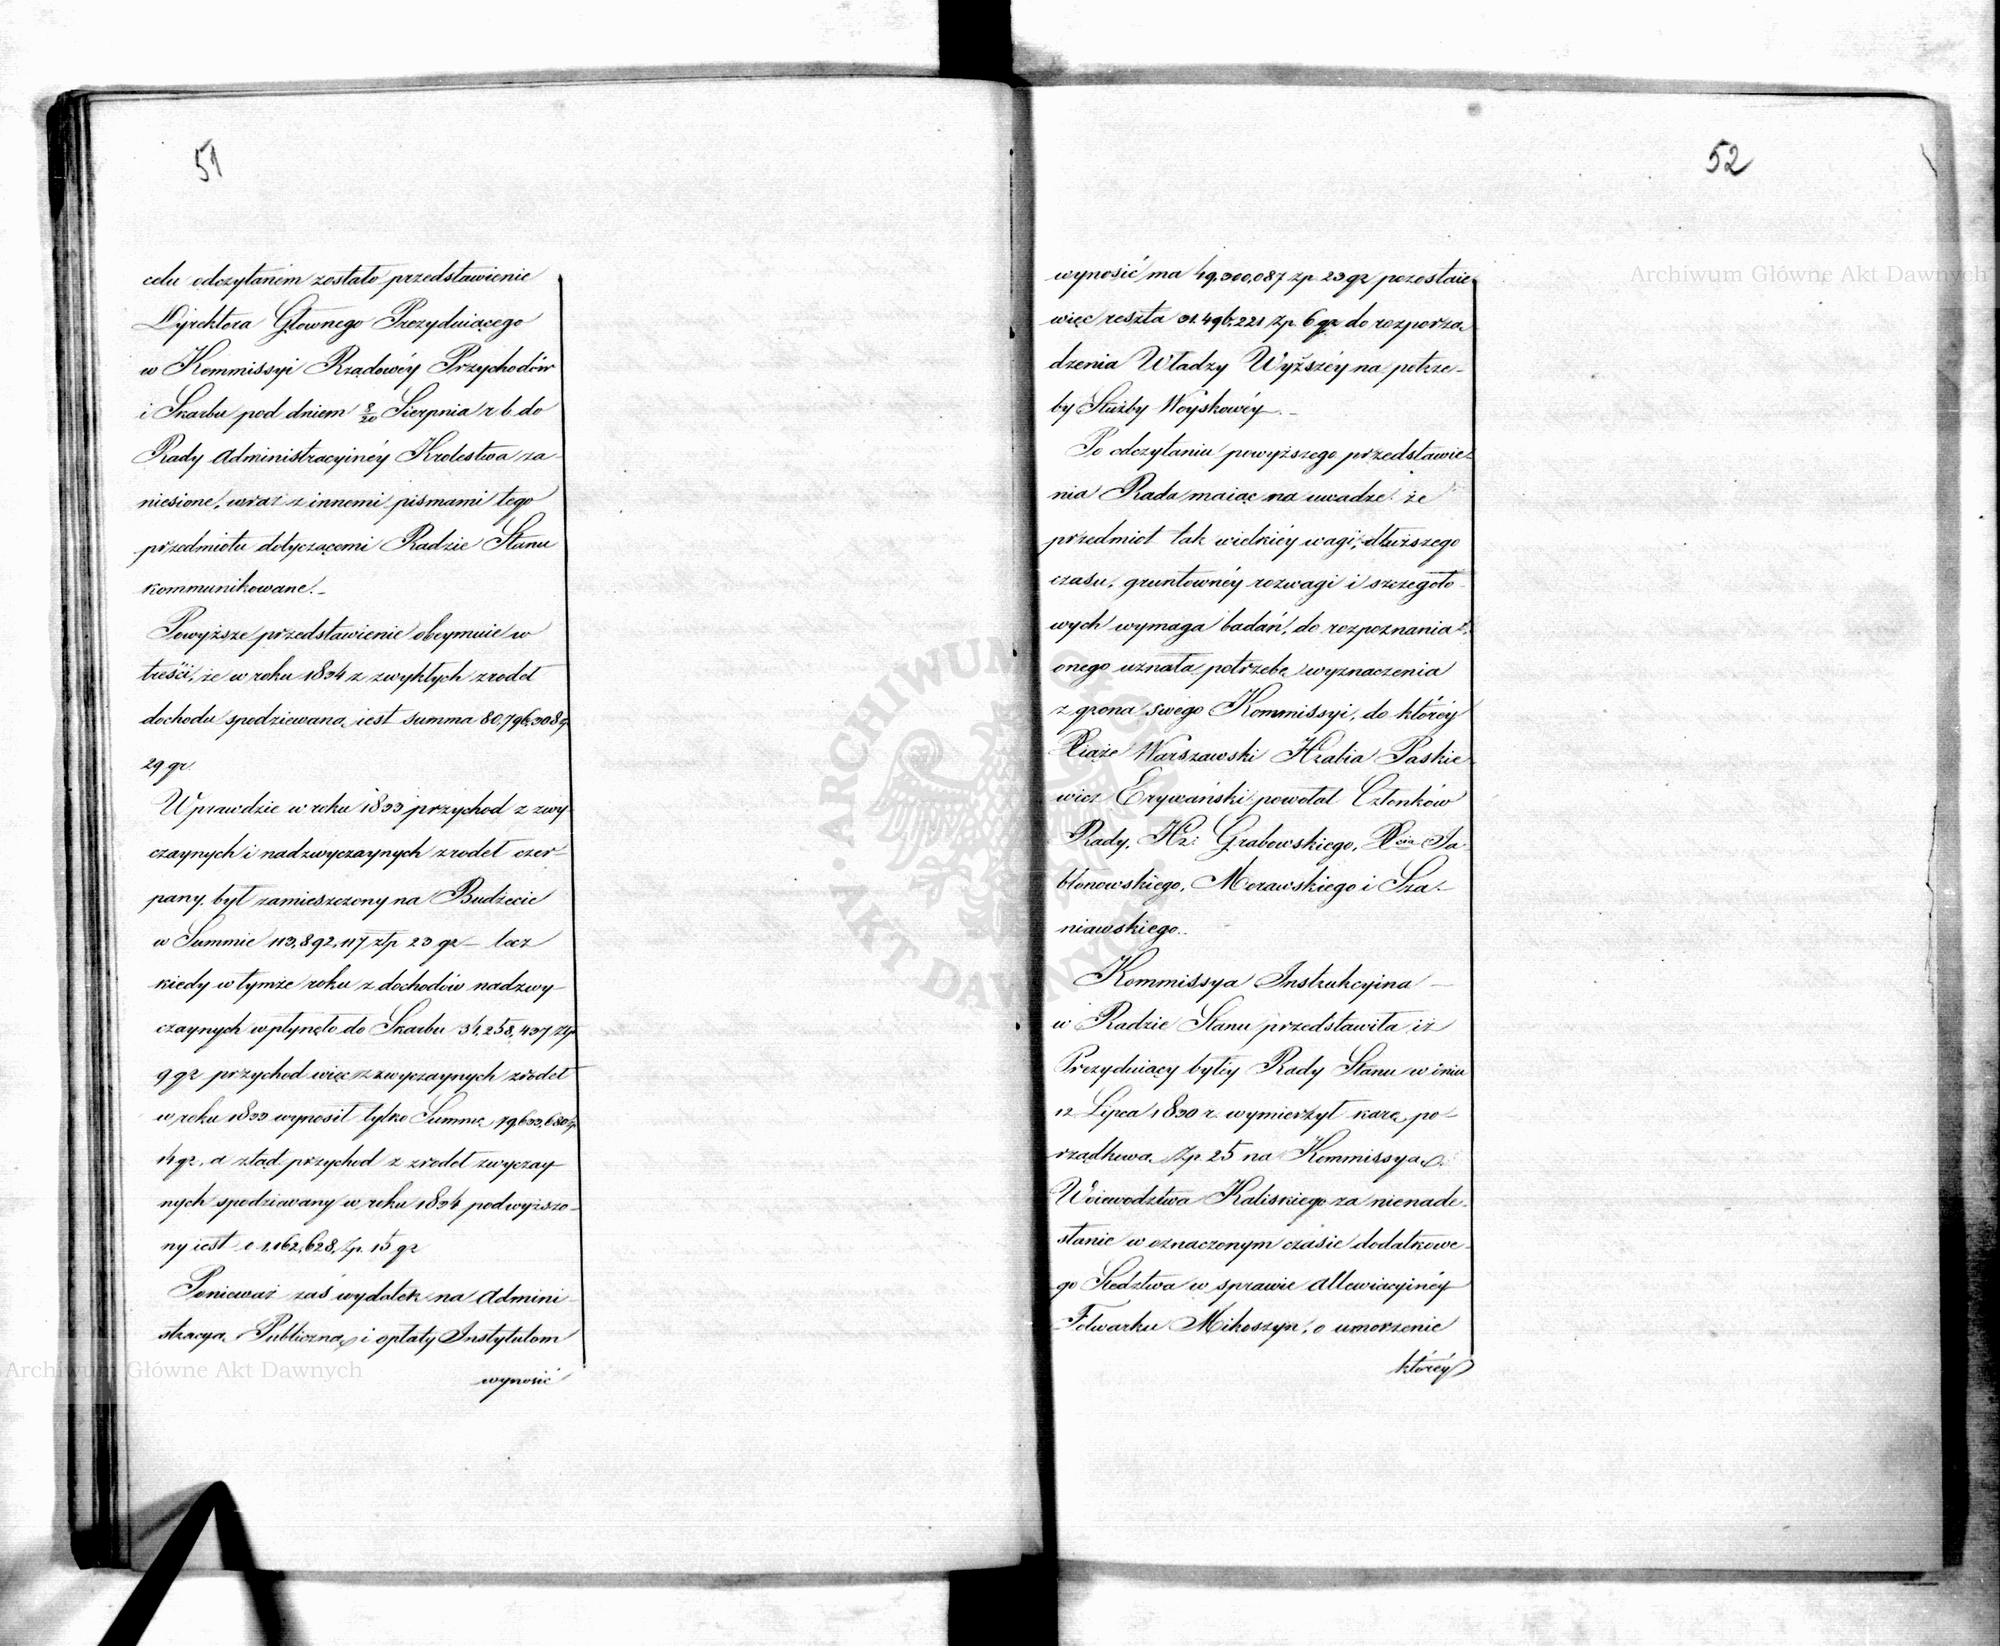 51
celu odczytaném zostało przedstawienie
Dyrektora Głownego Prezyduiącego
w Kommissyi Rządowéy Przychodów
i Skarbu pod dniem 8/20 Sierpnia r b. do
Rady Administracyinéy Krolestwa za-
niesione, wraz z innemi pismami tego
przedmiotu dotyczącemi Radzie Stanu
kommunikowane.-
Powyższe przedstawienie obeymuie w
treści, że w roku 1834 z zwykłych zrodeł
dochodu spodziewana iest summa 80,796,308 zł
29 gr.
Wprawdzie w roku 1833 przychod z zwy-
czaynych i nadzwyczaynych zrodeł czer-
pany, był zamieszczony na Budżecie
w Summie 113,892,117 złp 23 gr – lecz
kiedy w tymże roku z dochodów nadzwy-
czaynych wpłynęło do Skarbu 34,258,437 Złp
9 gr przychod więc z zwyczaynych zrodeł
w roku 1833 wynosił tylko Summę 79,633,680 Zp
14 gr, a ztąd przychod z zrodeł zwyczay-
nych spodziewany w roku 1834 podwyższo-
ny iest o 1,162,628, Zp. 15 gr
Ponieważ zaś wydatek na Admini-
stracyą Publiczną, i opłaty Instytutom
wynosić
52
wynosić ma 49,300,087 Zp. 23 gr pozostaie
więc reszta 31.496,221 Zp. 6 gr do rozporzą-
dzenia Władzy Wyższéy na potrze-
by Służby Woyskowéy.-
Po odczytaniu powyższego przedstawie-
nia Rada maiąc na uwadze: że
przedmiot tak wielkiéy wagi, dłuższego
czasu, gruntownéy rozwagi i szczegóło-
wych wymaga badań, do rozpoznania
onego uznała potrzebę wyznaczenia
z grona swego Kommissyi, do któréy
Xiąże Warszawski Hrabia Paskie-
wicz Erywański powołał Członków
Rady, Hr: Grabowskiego, Xcia Ja-
błonowskiego, Morawskiego i Sza-
niawskiego.
Kommissya Instrukcyina –
w Radzie Stanu przedstawiła, iż
Prezyduiący byłéy Rady Stanu w dniu
12 Lipca 1830 r. wymierzył karę po-
rządkową Zp. 25 na Kommissyą
Woiewodztwa Kaliskiego za nienade-
słanie w oznaczonym czasie dodatkowe-
go Śledztwa w sprawie Allewiacyinéy
Folwarku Mikoszyn, o umorzenie
któréy
Archiwum Główne Akt Dawnych
Archiwum Główne Akt Dawnych
ARCHIWUM GŁÓWNE AKT DAWNYCH